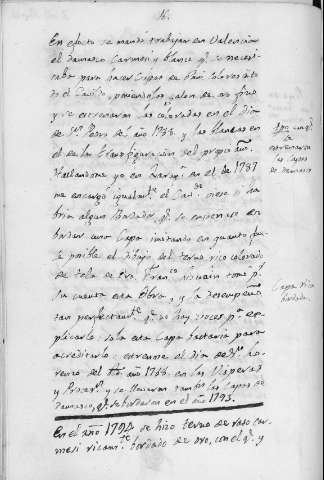 16.
En efecto se mandó trabajar en Valencia
el damasco Carmesi y blanco qe. se necesi-
taba para hacer Capas de
do el Cavdo. poniendolas galon de oro fino
y se estrenaron las coloradas en el dia
de Sn. Pedro del año 1788. y las blancas en
el de la transfiguracion del propio año.
Hallandome yo en Zarago. en el de 1787
me encargó igualte. el Cavdo. viese si ha-
bria algun Bordador qe. se encargase en
bordar una Capa imitando en quanto fue-
se posible el dibujo del terno rico colorado
de tela de oro. Franco. tomó pr.
su cuenta esta Obra, y la desempeñó
tan perfectamte. qe. no hay voces pa. ex-
plicarlo: sola esta Capa bastaria para
acreditarlo: estrenose el dia de Sn. Lo-
renzo del año 1788. en las Visperas
y Proceson. y se llevaron tambn. las Capas de
Damasco, qe. se bordaron en el año 1793.
En el año 1794 se hizo terno de raso car-
mesi ricamte. bordado de oro, con el qe. y
se
estrenaron
las Capas
de damasco
Capa rica
bordada.